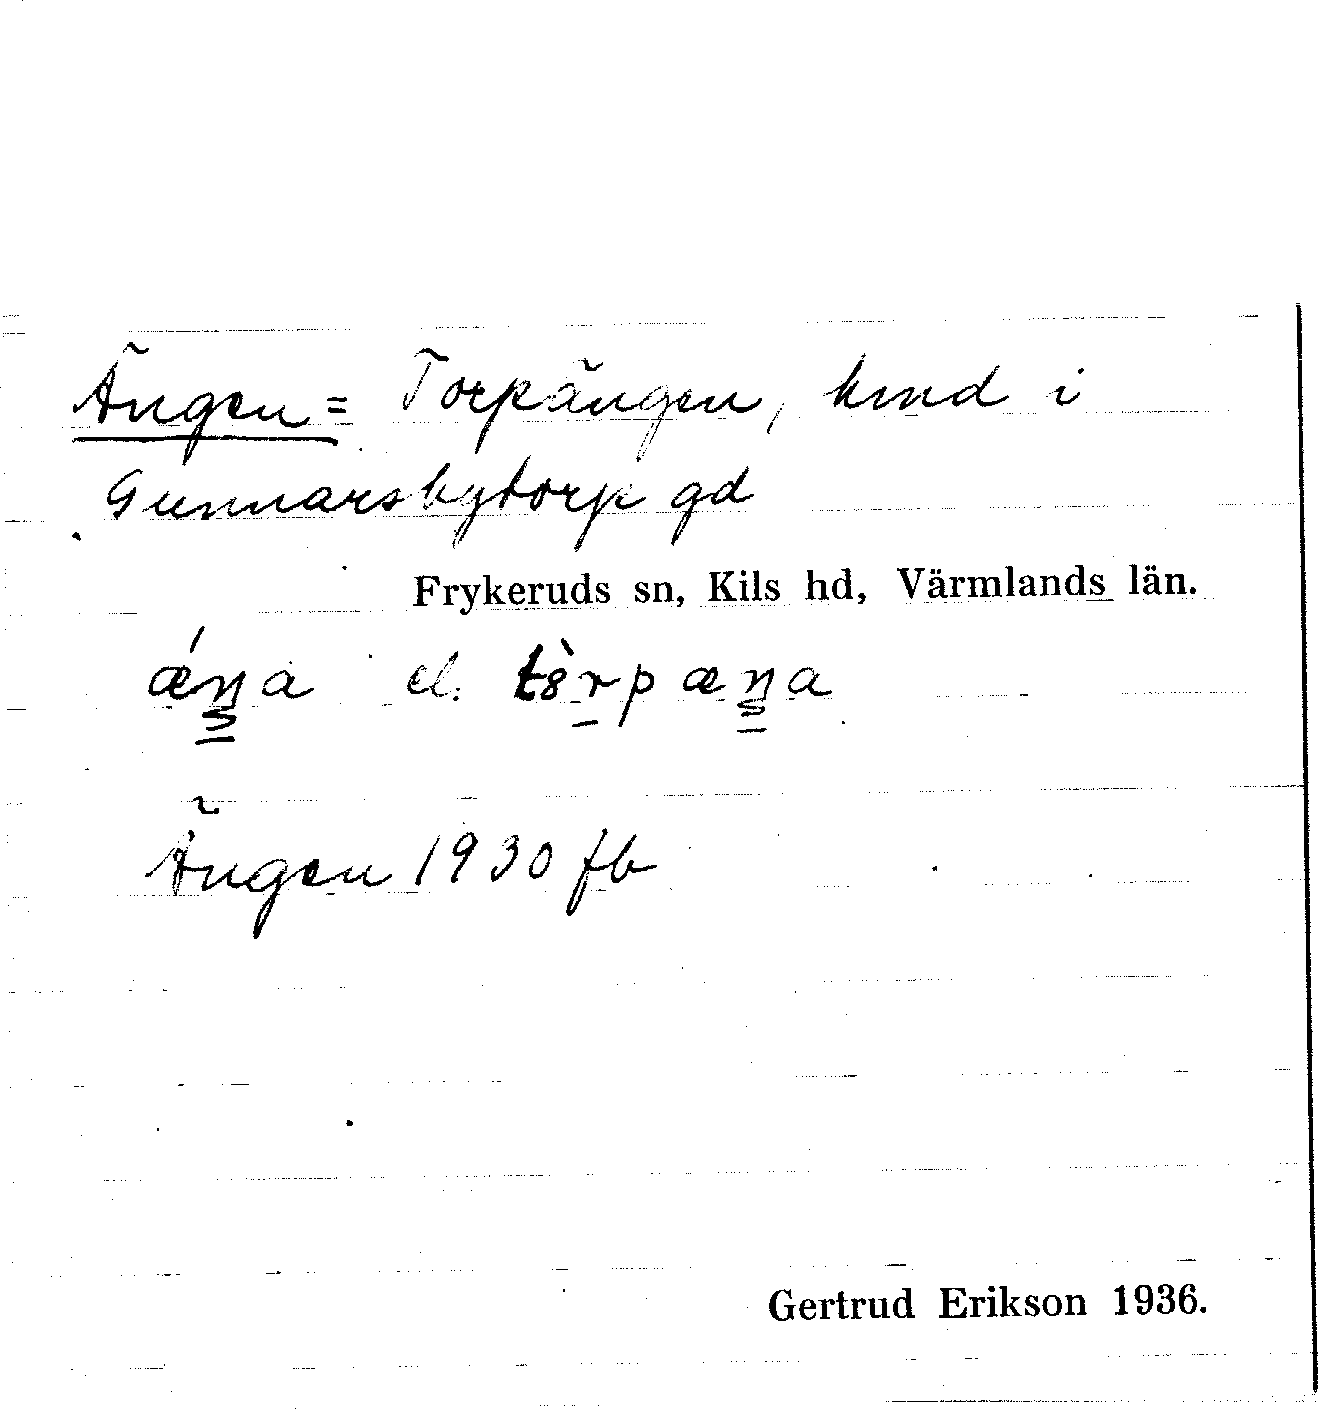 Ängen = Torpängen, hmd i
Gunnarsbytorp gd
Frykeruds sn, Kils hd, Värmlands län.
ǽŋa el. tȯ̀rpæŋa
Ängen 1930 fb
Gertrud Erikson 1936.